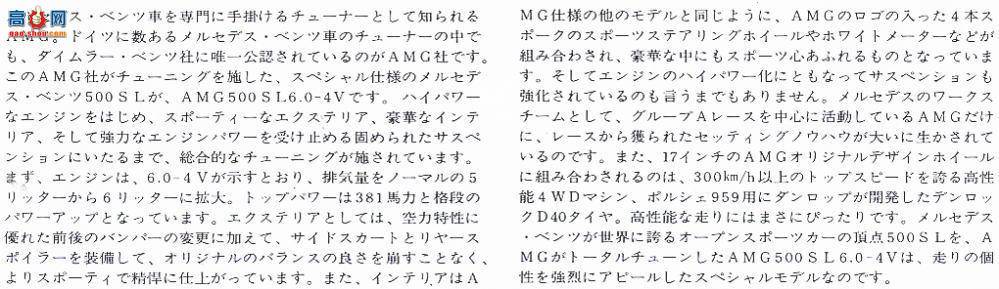 ス・ベンツ車を専門に手掛けるチューナーとして知られる
AMG。ドイツに数あるメルセデス・ベンツ車のチューナーの中で
も、ダイムラー・ベンツ社に唯一公認されているのがAMG社です。
このAMG社がチューニングを施した、スペシャル仕様のメルセデ
ス・ベンツ500SLが、AMG500SL6.0-4Vです。ハイパワー
なエンジンをはじめ、スポーティーなエクステリア、豪華なインテ
リア、そして強力なエンジンパワーを受け止める固められたサスペ
ンションにいたるまで、総合的なチューニングが施されています。
まず、エンジンは、6.0-4Vが示すとおり、排気量をノーマルの5
リッターから6リッターに拡大。トップパワーは381馬力と格段の
パワーアップとなっています。エクステリアとしては、空力特性に
優れた前後のバンパーの変更に加えて、サイドスカートとリヤース
ポイラーを装備して、オリジナルのバランスの良さを崩すことなく、
よりスポーティで精悍に仕上がっています。また、インテリアはA
MG仕様の他のモデルと同じように、AMGのロゴの入った4本ス
ポークのスポーツステアリングホイールやホワイトメーターなどが
組み合わされ、豪華な中にもスポーツ心あふれるものとなっていま
す。そしてエンジンのハイパワー化にともなってサスペンションも
強化されているのも言うまでもありません。メルセデスのワークス
チームとして、グループAレースを中心に活動しているAMGだけ
に、レースから獲られたセッティングノウハウが大いに生かされて
いるのです。また、17インチのAMGオリジナルデザインホイール
に組み合わされるのは、300km/h以上のトップスピードを誇る高性
能4WDマシン、ポルシェ959用にダンロップが開発したデンロッ
クD40タイヤ。高性能な走りにはまさにぴったりです。メルセデス
・ベンツが世界に誇るオープンスポーツカーの頂点500SLを、A
MGがトータルチューンしたAMG500SL6.0-4Vは、走りの個
性を強烈にアピールしたスペシャルモデルなのです。
高清网
gaoshou.com